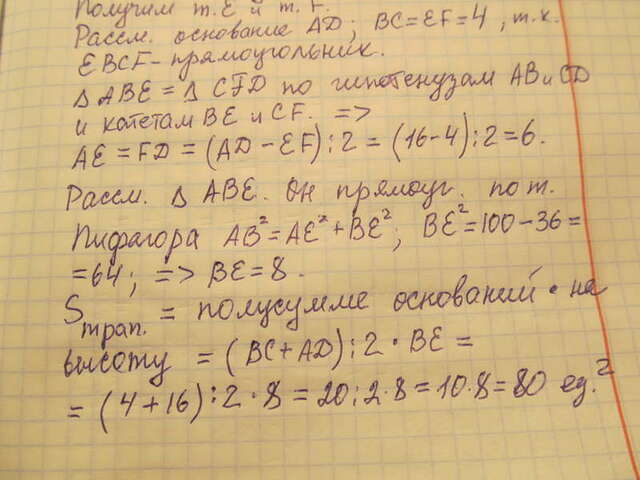 Получим т. E и т. F.
Рассм. основание AD; BC=EF=4, т.к.
EBCF-прямоугольник.
Δ ABE = Δ CFD по гипотенузам AB и CD
и катетам BE и CF. =>
AE = FD = (AD - EF) : 2 = (16-4) : 2 = 6.
Рассм. Δ ABE. Он прямоуг. по т.
Пифагора AB² = AE² + BE²; BE² = 100 - 36 =
= 64; => BE = 8.
Sтрап. = полусумме оснований • на
высоту = (BC + AD) : 2 • BE =
= (4 + 16) : 2 • 8 = 20 : 2 • 8 = 10 • 8 = 80 ед.²